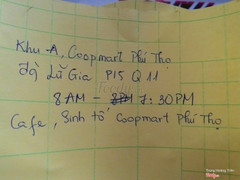 Khu A, Coopmart Phú Thọ
đg Lữ Gia P15 Q11
8 AM - 8PM 7:30PM
Cafe, Sinh tố Coopmart Phú Thọ